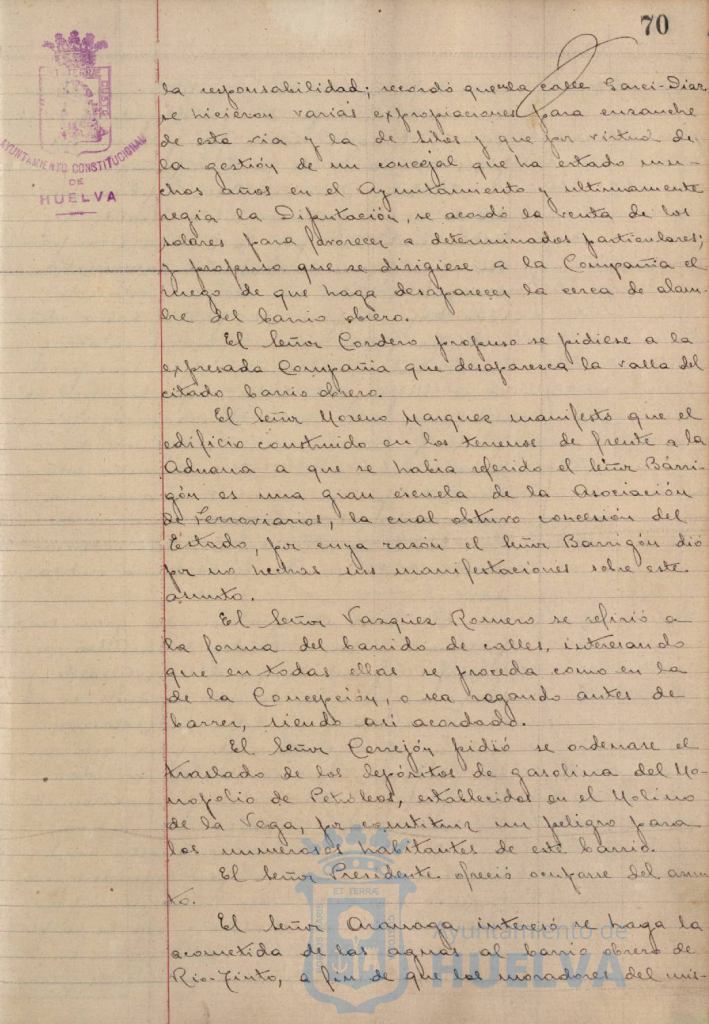 70
AYUNTAMIENTO CONSTITUCIONAL
DE
HUELVA
la responsabilidad; recordó que la calle Garci-Diaz
se hicieron varias expropiaciones para ensanche
de esta via y la de Silos y que por virtud de
la gestión de un concejal que ha estado mu-
chos años en el Ayuntamiento y ultimamente
regía la Diputación, se acordó la venta de los
solares para favorecer a determinados particulares;
y propuso que se dirigiese a la Compañia el
ruego de que haga desaparecer la cerca de alam-
bre del barrio obrero.
El Señor Cordero propuso se pidiese a la
expresada Compañia que desaparezca la valla del
citado barrio obrero.
El Señor Moreno Marquez manifestó que el
edificio construido en los terrenos de frente a la
Aduana a que se habia referido el Señor Bárri-
gón es una gran escuela de la Asociación
de Ferroviarios, la cual obtuvo concesión del
Estado, por cuya razón el Señor Barrigón dió
por no hechas sus manifestaciones sobre este
asunto.
El Señor Vazquez Romero se refirió a
la forma del barrido de calles, interesando
que en todas ellas se proceda como en la
de la Concepción, o sea regando antes de
barrer, siendo asi acordado.
El Señor Cerrejón pidió se ordenase el
traslado de los depósitos de gasolina del Mo-
nopolio de Petróleos, establecidos en el Molino
de la Vega, por constituir un peligro para
los numerosos habitantes de este barrio.
El Señor Presidente ofreció ocuparse del asun-
to.
El Señor Aranaga interesó se haga la
acometida de las aguas al barrio obrero de
Rio-Tinto, a fin de que los moradores del mis-
Ayuntamiento de
HUELVA